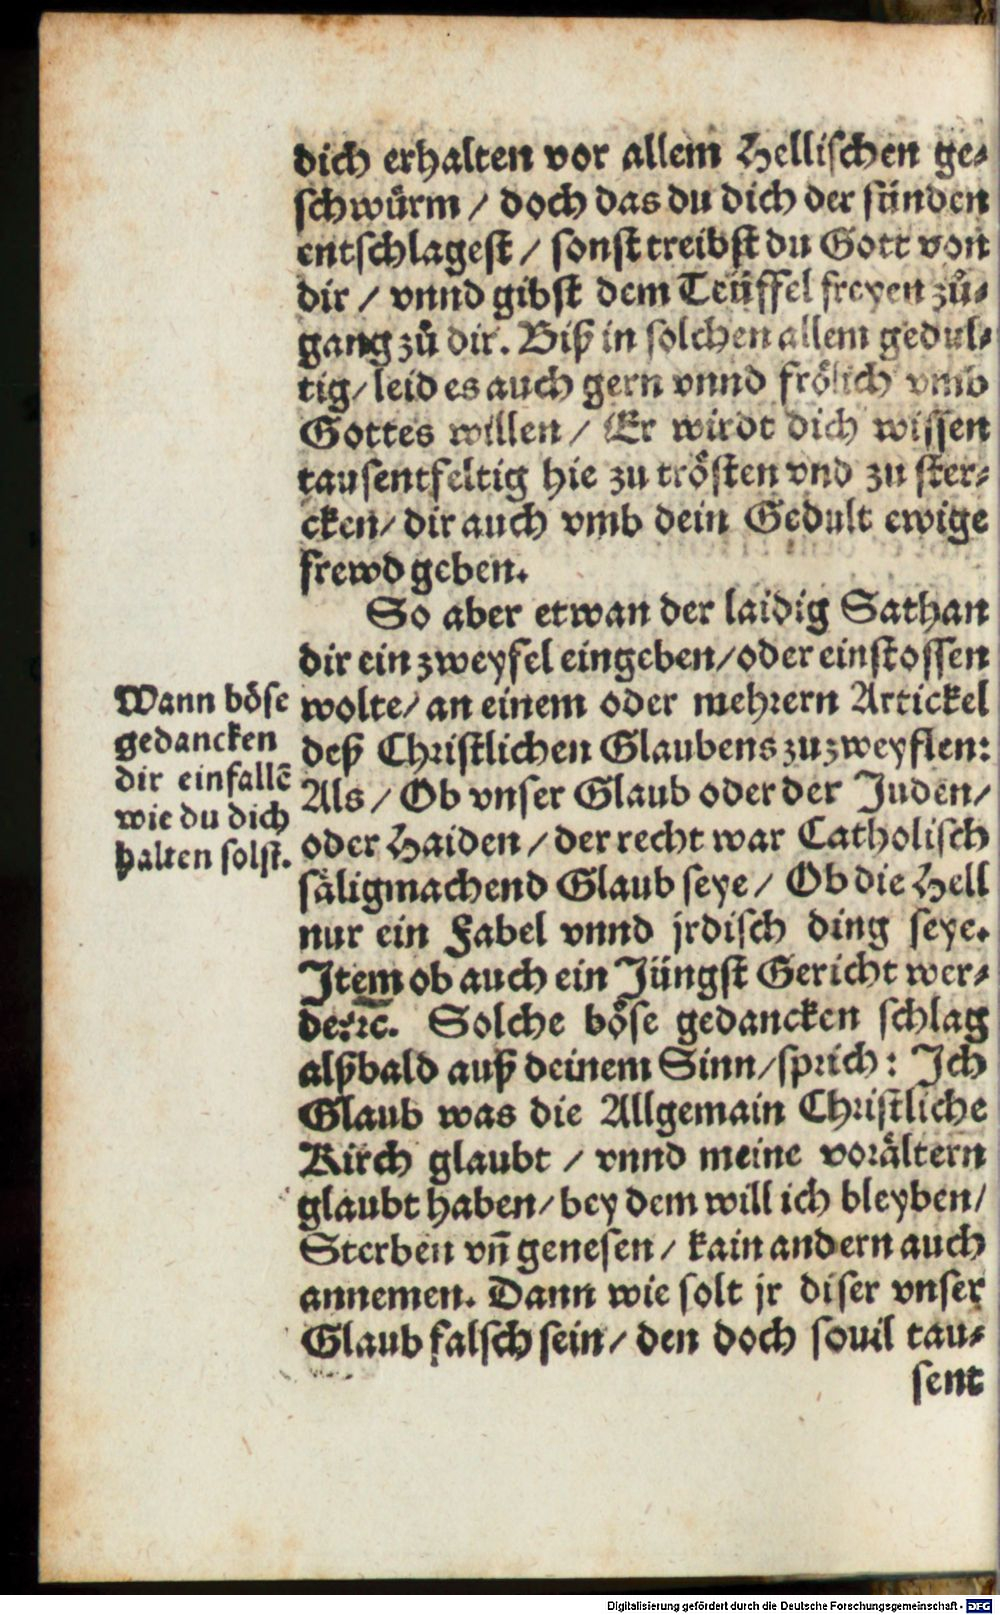 dich erhalten vor allem Hellischen ge⸗
schwürm / doch das du dich der sünden
entschlagest / sonst treibst du Gott von
dir / vnnd gibst dem Teüffel freyen zů⸗
gang zů dir. Biß in solchen allem gedul⸗
tig / leid es auch gern vnnd frölich vmb
Gottes willen / Er wirdt dich wissen
tausentfeltig hie zu trösten vnd zu ster⸗
cken / dir auch vmb dein Gedult ewige
frewd geben.
So aber etwan der laidig Sathan
dir ein zweyfel eingeben / oder einstossen
wolte / an einem oder mehrern Artickel
deß Christlichen Glaubens zu zweyflen:
Als / Ob vnser Glaub oder der Juden /
oder Haiden / der recht war Catholisch
säligmachend Glaub seye / Ob die Hell
nur ein Fabel vnnd jrdisch ding seye.
Item ob auch ein Jüngst Gericht wer⸗
de: ꝛc̄. Solche böse gedancken schlag
alßbald auß deinem Sinn / sprich: Ich
Glaub was die Allgemain Christliche
Kirch glaubt / vnnd meine vorältern
glaubt haben / bey dem will ich bleyben /
Sterben vñ genesen / kain andern auch
annemen. Dann wie solt jr diser vnser
Glaub falsch sein / den doch souil tau⸗
sent
Wann böse
gedancken
dir einfallē
wie du dich
halten solst.
Digitalisierung gefördert durch die Deutsche Forschungsgemeinschaft - DFG